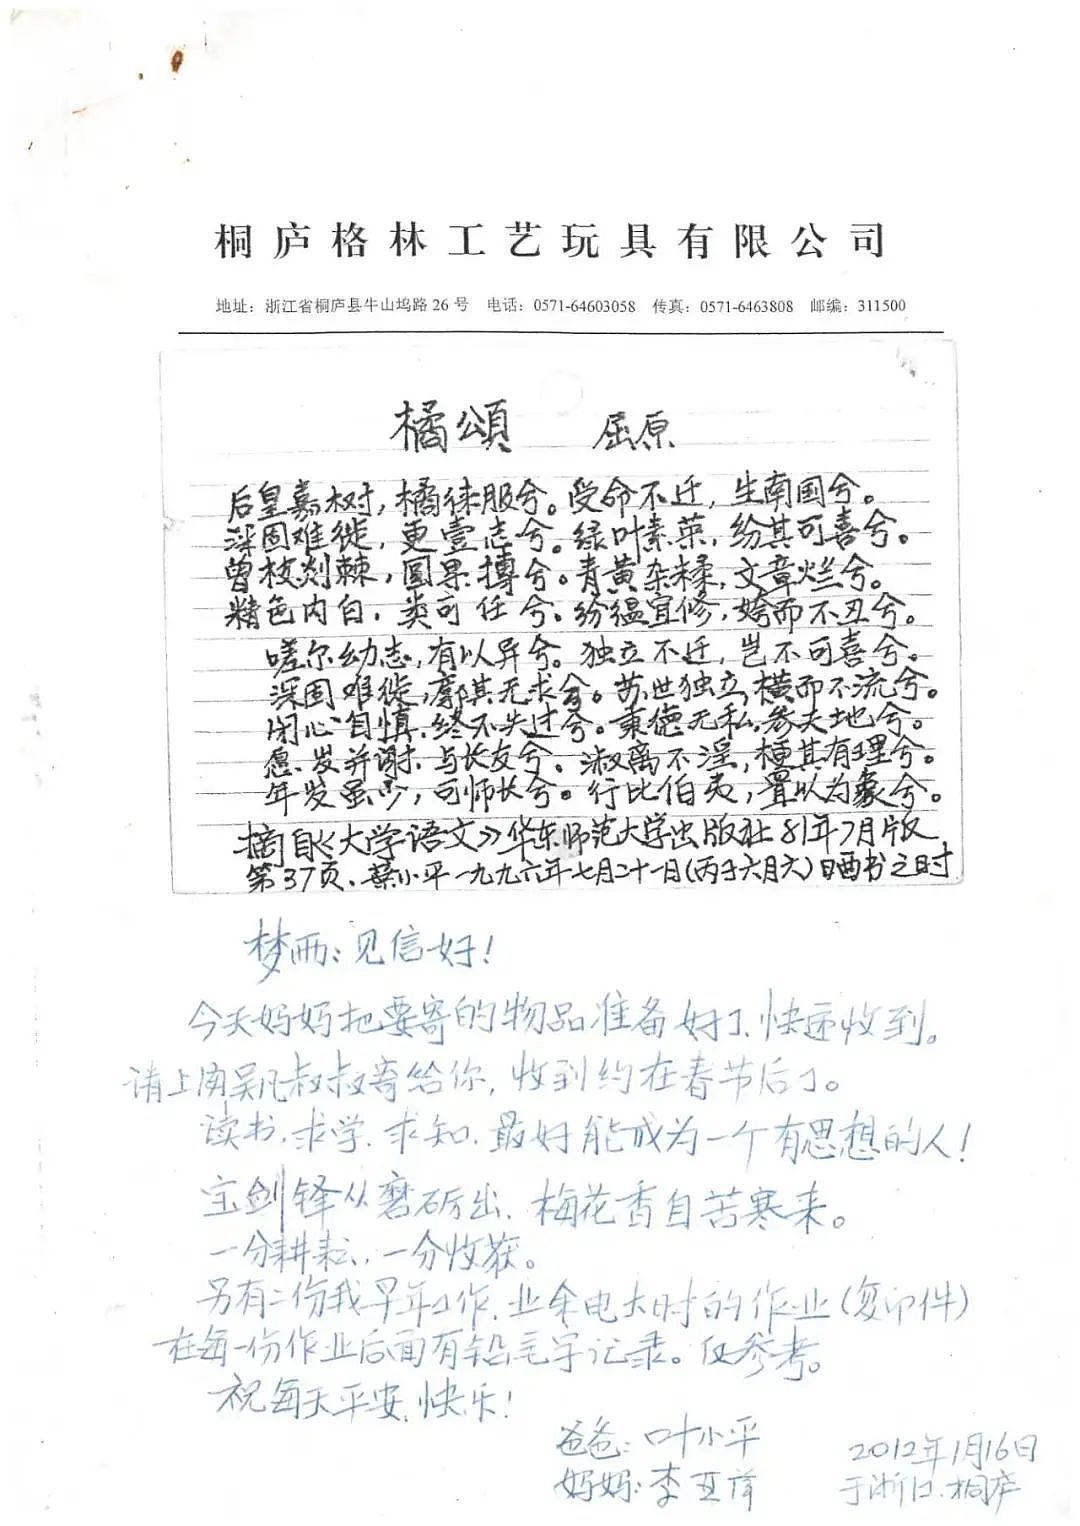 桐庐格林工艺玩具有限公司
地址：浙江省桐庐县牛山坞路 26 号 电话：0571-64603058 传真：0571-6463808 邮编：311500
橘頌 屈原
后皇嘉树，橘徕服兮。受命不迁，生南国兮。
深固难徙，更壹志兮。绿叶素荣，纷其可喜兮。
曾枝剡棘，圆果抟兮。青黄杂糅，文章烂兮。
精色内白，类可任兮。纷緼宜修，姱而不丑兮。
嗟尔幼志，有以异兮。独立不迁，岂不可喜兮。
深固难徙，廓其无求兮。苏世独立，横而不流兮。
闭心自慎，终不失过兮。秉德无私，参天地兮。
愿岁并谢，与长友兮。淑离不淫，梗其有理兮。
年岁虽少，可师长兮。行比伯夷，置以为象兮。
摘自《大学语文》华东师范大学出版社81年7月版
第37页、小平一九九六年七月二十一日(丙子六月六)日晒书之时
梦西：见信好！
今天妈妈把要寄的物品准备好了、快递收到。
请上海吴凡叔叔寄给你，收到约在春节后了。
读书、求学、求知、最好能成为一个有思想的人！
宝剑锋从磨砺出、梅花香自苦寒来。
一分耕耘、一分收获。
另有二份我早年工作、业余电大时的作业(复印件)
在每一份作业后面有铅毛字记录。仅参考。
祝每天平安、快乐！
爸爸：叶小平 2012年1月16日
妈妈：李亚萍 于浙江.桐庐